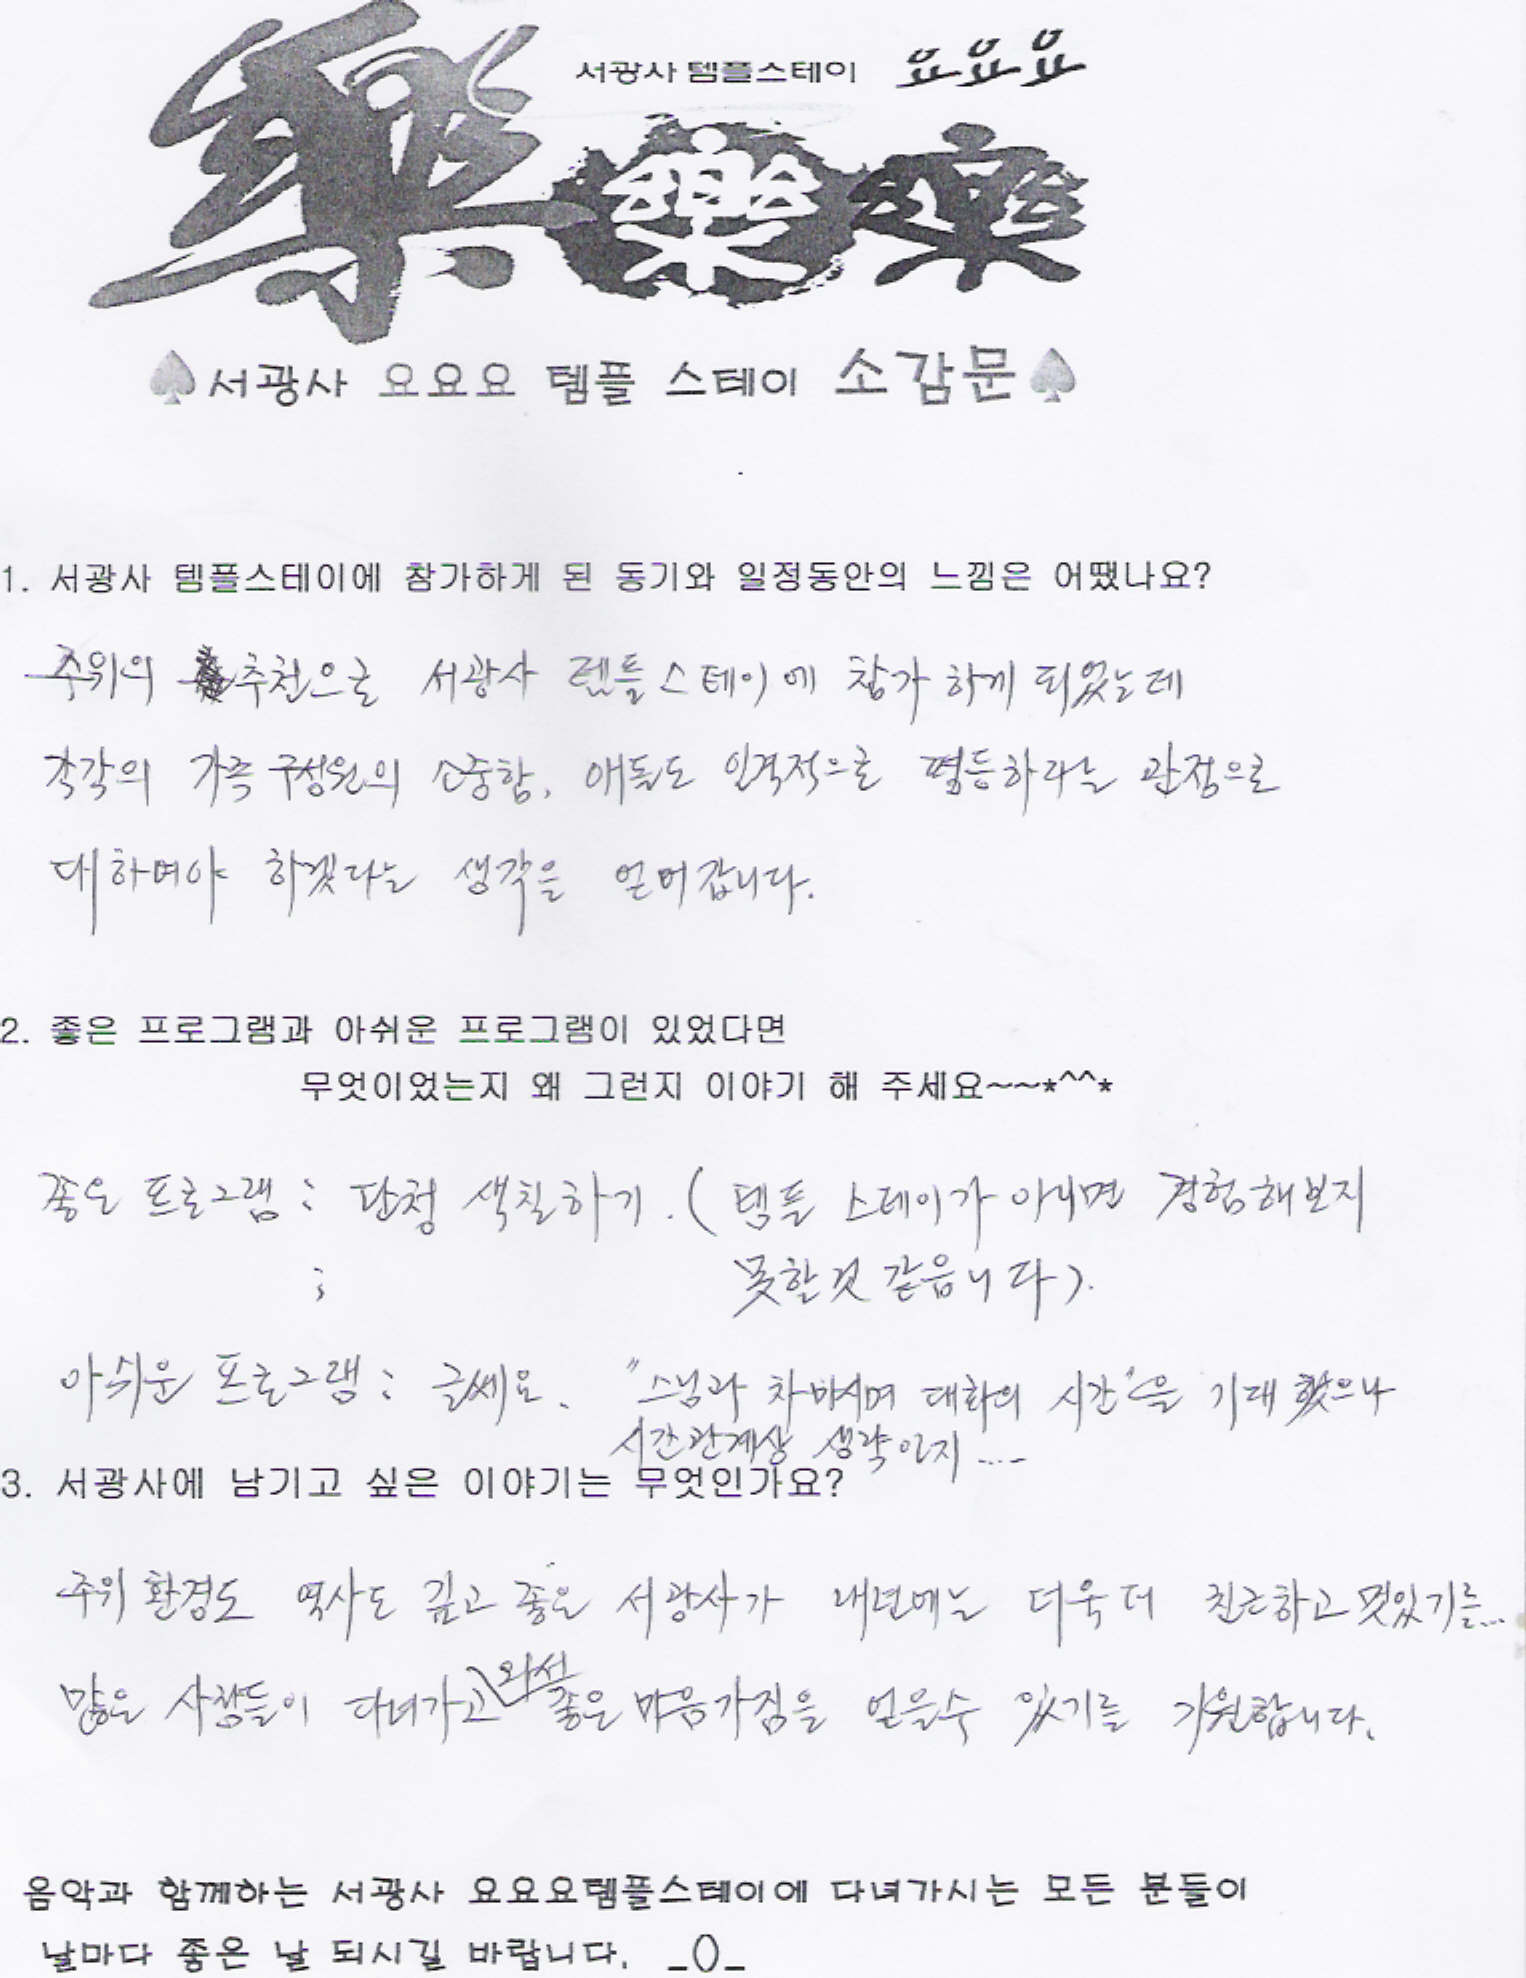 서광사 템플스테이 요요요
樂樂樂
♠서광사 요요요 템플 스테이 소감문♠
1. 서광사 템플스테이에 참가하게 된 동기와 일정동안의 느낌은 어땠나요?
주위의 추천으로 서광사 템플스테이에 참가하게 되었는데
각각의 가족 구성원의 소중함, 애들도 인격적으로 평등하라는 관점으로
대하며야 하겠다는 생각을 얻어갑니다.
2. 좋은 프로그램과 아쉬운 프로그램이 있었다면
무엇이었는지 왜 그런지 이야기 해 주세요~~*^^*
좋은 프로그램 : 단청 색칠하기. ( 템플 스테이가 아니면 경험해보지
; 못할것 같읍니다).
아쉬운 프로그램 : 글쎄요. "스님과 차 마시며 대화의 시간"을 기대 했으나
시간관계상 생략인지 ....
3. 서광사에 남기고 싶은 이야기는 무엇인가요?
주위 환경도 역사도 깊고 좋은 서광사가 내년에는 더욱 더 친근하고 멋있기를...
많은 사람들이 다녀가고 와서 좋은 마음가짐을 얻을수 있기를 기원합니다.
음악과 함께하는 서광사 요요요템플스테이에 다녀가시는 모든 분들이
날마다 좋은 날 되시길 바랍니다. _()_